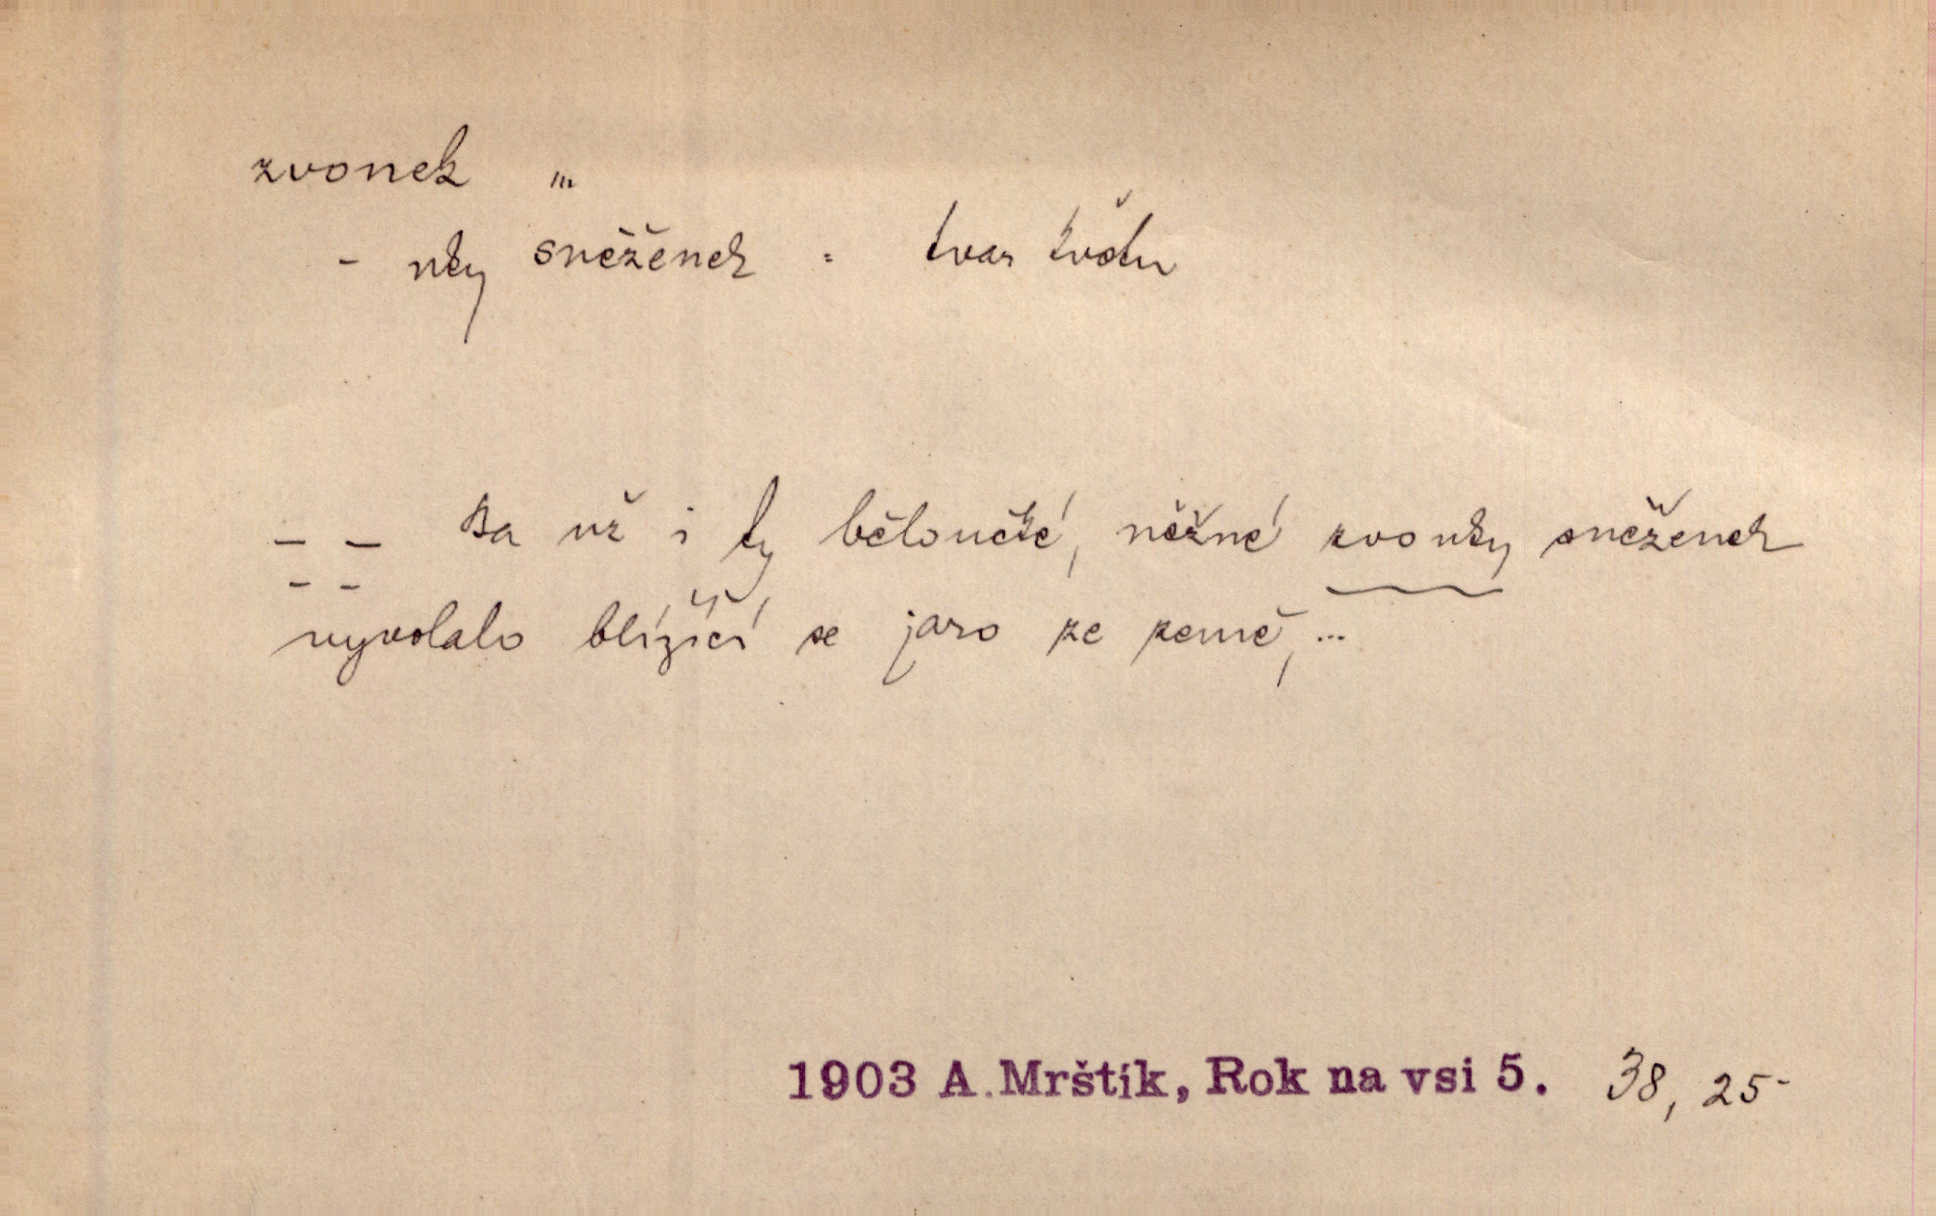 zvonek „,
- nky sněženek = tvar květu
— — Ba už i ty běloučké, něžné zvonky sněženek
vyvolalo blížící se jaro ze země, ...
1903 A. Mrštík, Rok na vsi 5. 38, 25-